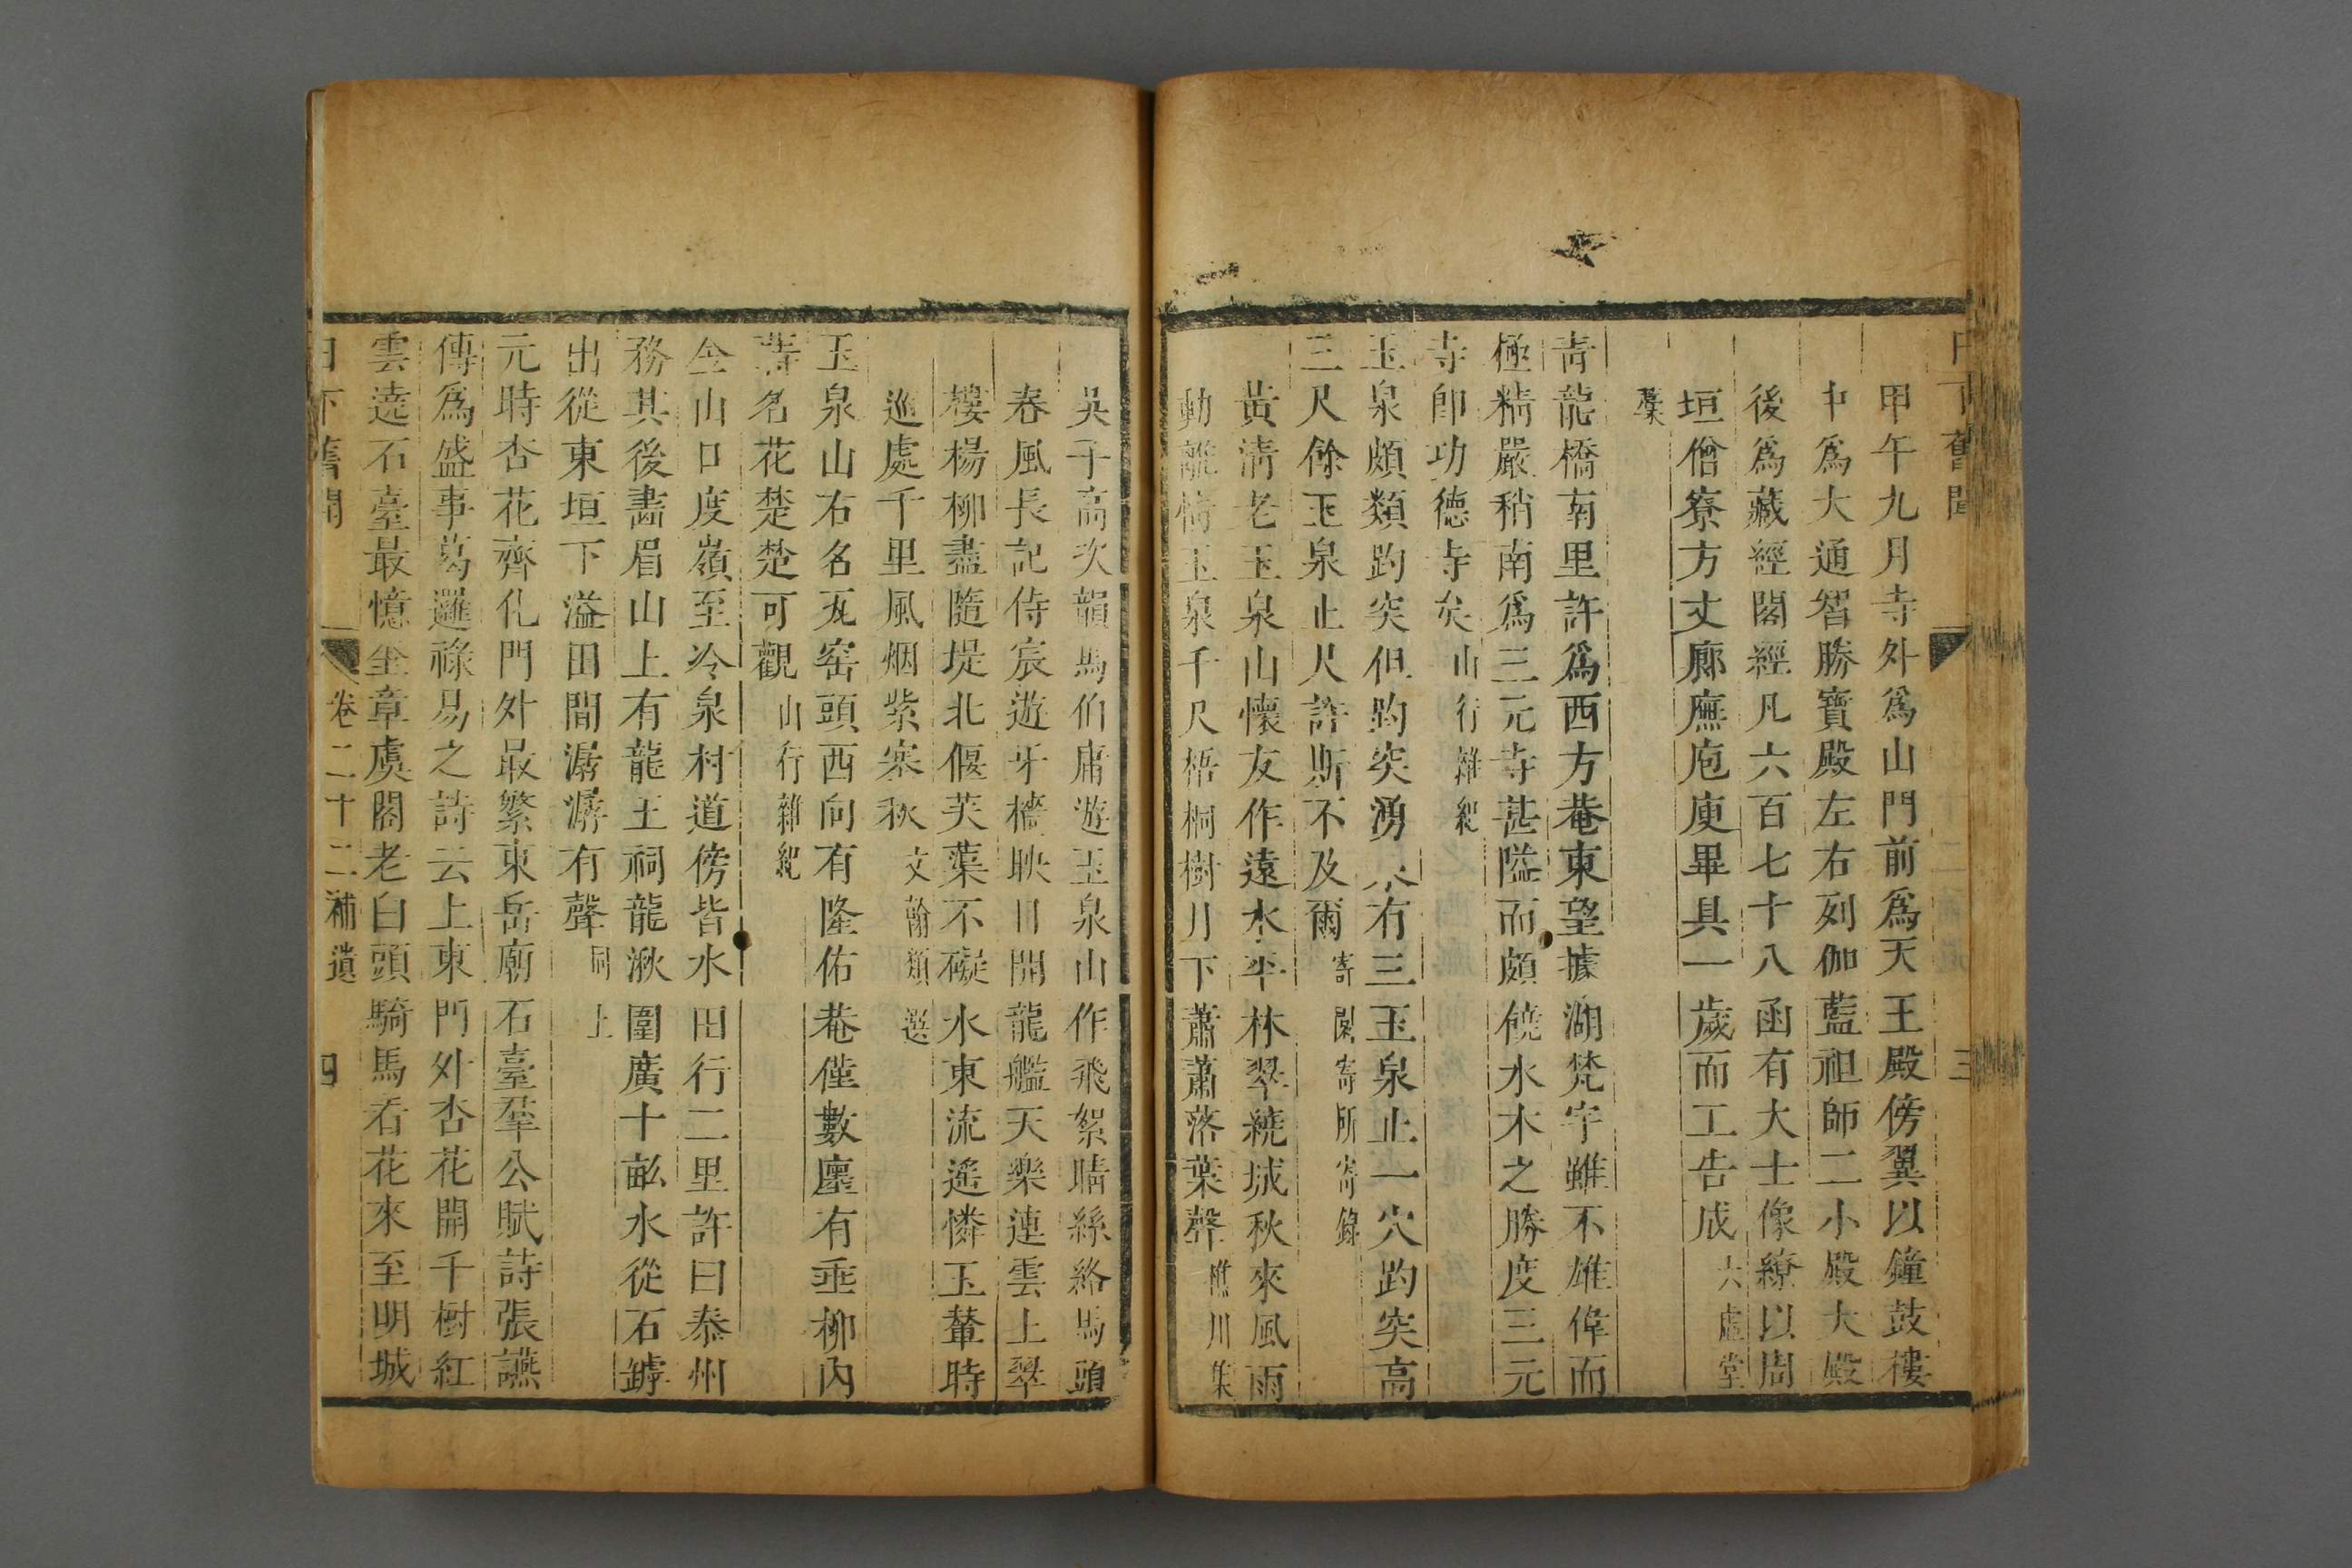 日下舊聞 三
甲午九月寺外爲山門前爲天王殿傍翼以鐘鼓樓
中爲大通智勝寶殿左右列伽藍祖師二小殿大殿
後爲藏經閣經凡六百七十八函有大士像繚以周
垣僧寮方丈廊廡庖庾畢具一歲而工告成 六虛堂
集
青龍橋南里許爲西方菴東望據湖梵宇雖不雄偉而
極精嚴稍南爲三元寺甚隘而頗饒水木之勝度三元
寺即功德寺矣 山行雜紀
玉泉頗類趵突但趵突湧水有三玉泉止一穴趵突高
三尺餘玉泉止尺許斯不及爾 寄園寄所寄錄
黃淸老玉泉山懷友作遠水平林翠繞城秋來風雨
動離情玉泉千尺梧桐樹月下蕭蕭落葉聲 樵川集
吳子高次韻馬伯庸遊玉泉山作飛絮晴絲絡馬頭
春風長記侍宸遊牙檣映日開龍艦天樂連雲上翠
樓楊柳盡隨堤北偃芙蕖不礙水東流遙憐玉輦時
巡處千里風烟紫塞秋 文翰類選
玉泉山右名瓦窑頭西向有隆佑菴僅數廛有垂柳內
蒔名花楚楚可觀 山行雜紀
金山口度嶺至冷泉村道傍皆水田行二里許曰泰州
務其後畵眉山上有龍王祠龍湫圍廣十畝水從石罅
出從東垣下溢田間潺潺有聲 同上
元時杏花齊化門外最繁東岳廟石臺羣公賦詩張讌
傳爲盛事葛邏祿易之詩云上東門外杏花開千樹紅
雲遶石臺最憶奎章虞閣老白頭騎馬看花來至明城
日下舊聞 卷二十二補遺 四